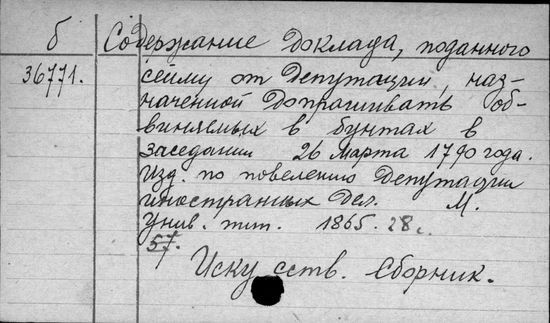 б Содержание доклада, поданного
36771. сейму от Депутации, наз-
наченной допрашивать об-
виняемых в бунтах в
заседании 26 марта 1790 года.
Изд. по повелению Депутации
иностранных дел. М.
Унив. тип. 1865. 28 с.
57.
Искусств. Сборник.